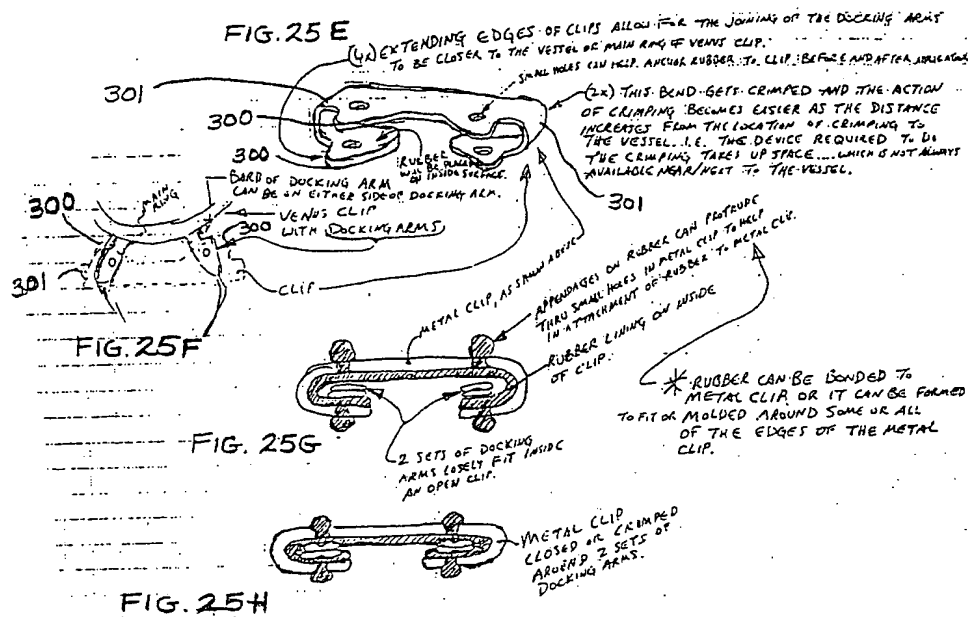 FIG. 25 E
(4x) EXTENDING EDGES OF CLIPS ALLOW FOR THE JOINING OF THE DOCKING ARMS
TO BE CLOSER TO THE VESSEL OR MAIN RING OF VENUS CLIP.
SMALL HOLES CAN HELP ANCHOR RUBBER TO CLIP BEFORE AND AFTER APPLICATION
301
300
300
RUBBER
WILL BE PLACED
ON INSIDE SURFACE.
(2x) THIS BEND GETS CRIMPED AND THE ACTION
OF CRIMPING BECOMES EASIER AS THE DISTANCE
INCREASES FROM THE LOCATION OF CRIMPING TO
THE VESSEL. I.E. THE DEVICE REQUIRED TO DO
THE CRIMPING TAKES UP SPACE .... WHICH IS NOT ALWAYS
AVAILABLE NEAR/NEXT TO THE VESSEL.
301
BARB OF DOCKING ARM
CAN BE ON EITHER SIDE OF DOCKING ARM.
MAIN
RING
300
VENUS CLIP
WITH DOCKING ARMS
300
301
CLIP
FIG. 25F
METAL CLIP, AS SHOWN ABOVE
APPENDAGES ON RUBBER CAN PROTRUDE
THRU SMALL HOLES IN METAL CLIP TO HELP
IN ATTACHMENT OF RUBBER TO METAL CLIP.
RUBBER LINING ON INSIDE
OF CLIP.
* RUBBER CAN BE BONDED TO
METAL CLIP OR IT CAN BE FORMED
TO FIT OR MOLDED AROUND SOME OR ALL
OF THE EDGES OF THE METAL
CLIP.
FIG. 25G
2 SETS OF DOCKING
ARMS LOSELY FIT INSIDE
AN OPEN CLIP.
METAL CLIP
CLOSED OR CRIMPED
AROUND 2 SETS OF
DOCKING ARMS.
FIG. 25H